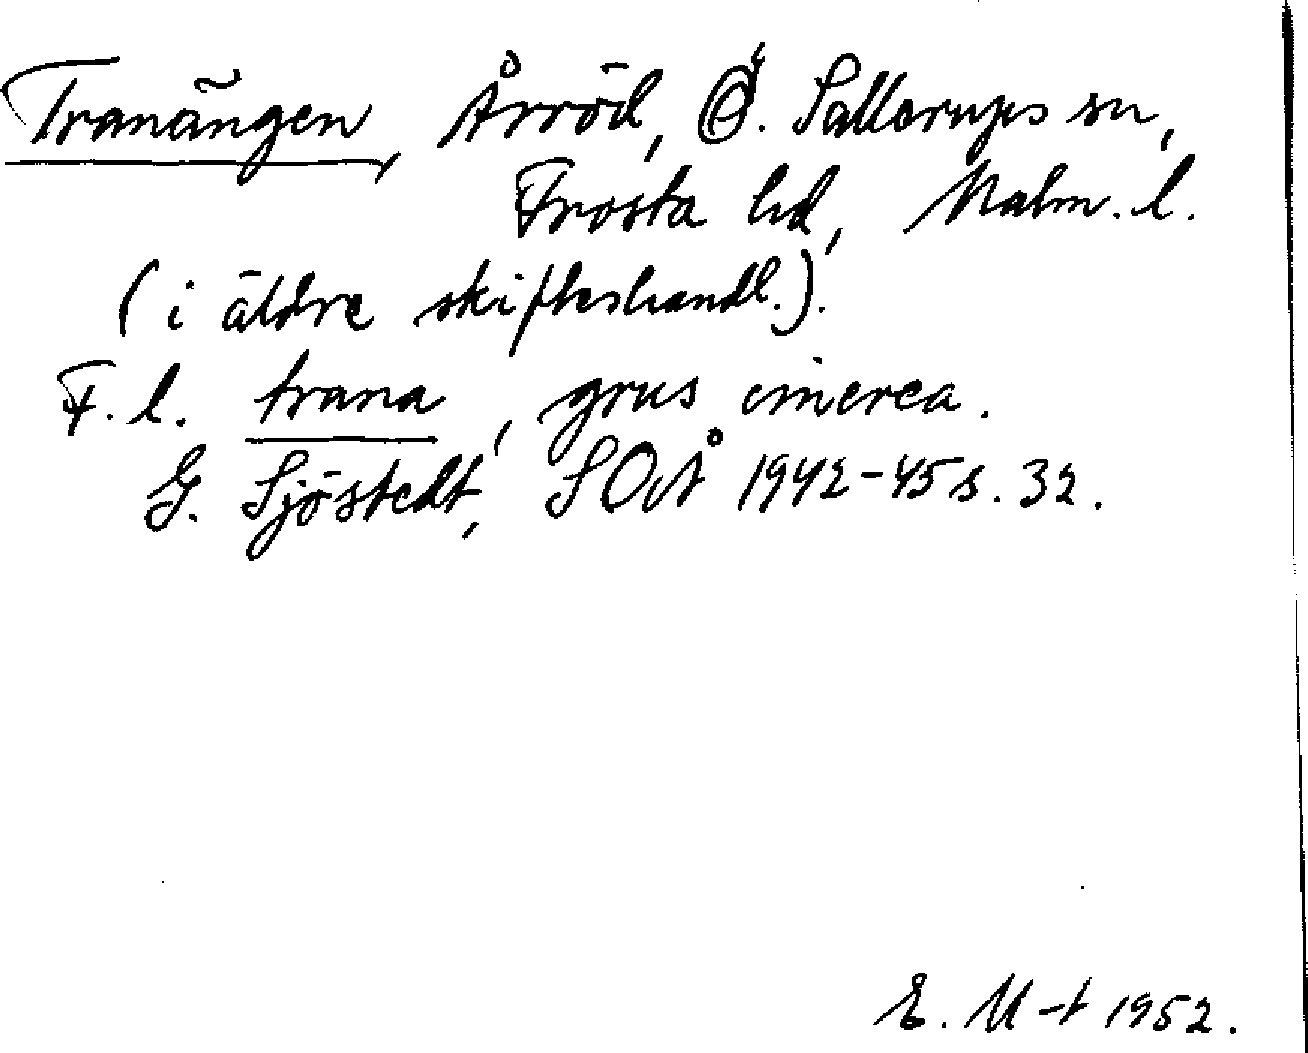 Tranängen, Årröd, Ö. Sallerups sn,
Frosta hd, Malm. l.
(i äldre skifteshandl.).
F. l. trana, grus cinerea.
G. Sjöstedt, SOÅ 1942-45 s. 32.
E. M-t 1952.